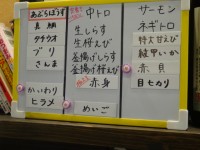 あぶらぼうず
真鯛
タチウオ
ブリ
さんま
かいわり
ヒラメ
中トロ
生しらす
生桜えび
釜揚げしらす
釜揚げ桜えび
赤身
めいご
サーモン
ネギトロ
特大甘えび
紋甲いか
赤貝
目ヒカリ